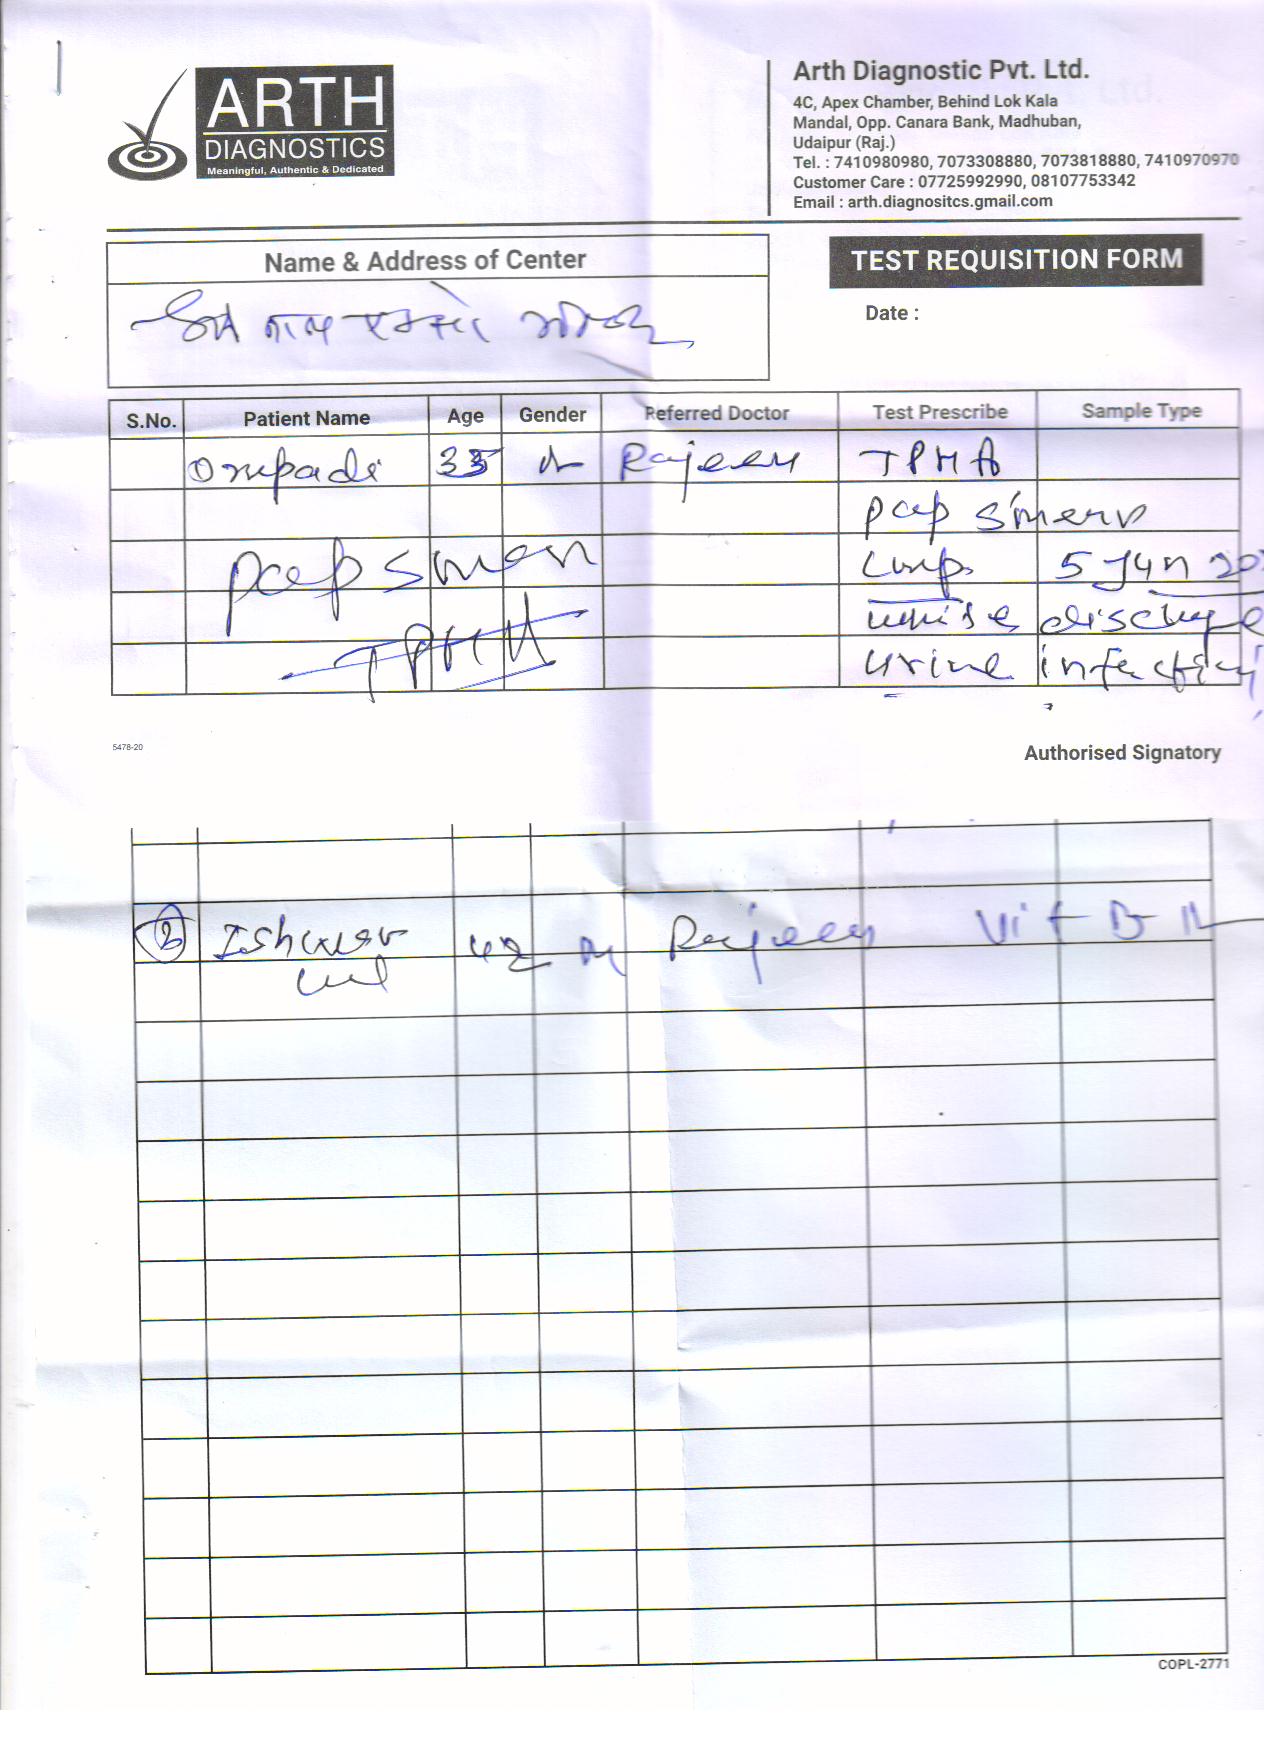 ARTH
DIAGNOSTICS
Meaningful, Authentic & Dedicated
Arth Diagnostic Pvt. Ltd.
4C, Apex Chamber, Behind Lok Kala
Mandal, Opp. Canara Bank, Madhuban,
Udaipur (Raj.)
Tel. : 7410980980, 7073308880, 7073818880, 7410970970
Customer Care : 07725992990, 08107753342
Email : arth.diagnositcs.gmail.com
Name & Address of Center
TEST REQUISITION FORM
Date :
S.No. Patient Name Age Gender Referred Doctor Test Prescribe Sample Type
Rajeev TPHA
pap smear
pap smear 5 Jun
TPHA discharge
urine infection
5478-20
Authorised Signatory
2 Ishwar 42 M Rajeev Vit B 12
Lal
COPL-2771